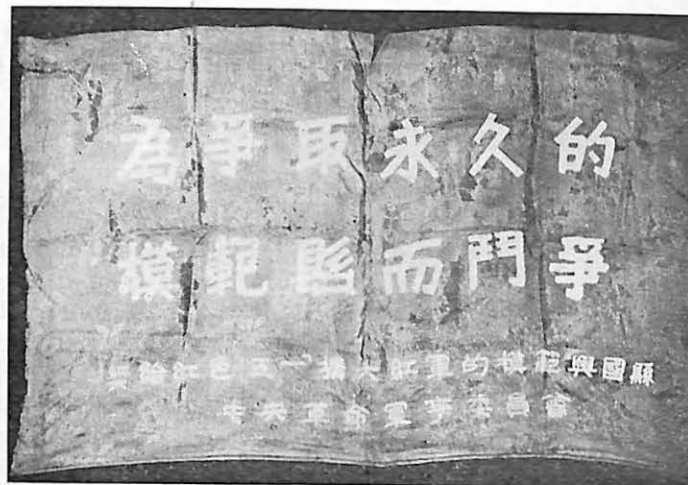 為爭取永久的
模範縣而鬥爭
獎給紅色五一擴大紅軍的模範興國縣
中央革命軍事委員會